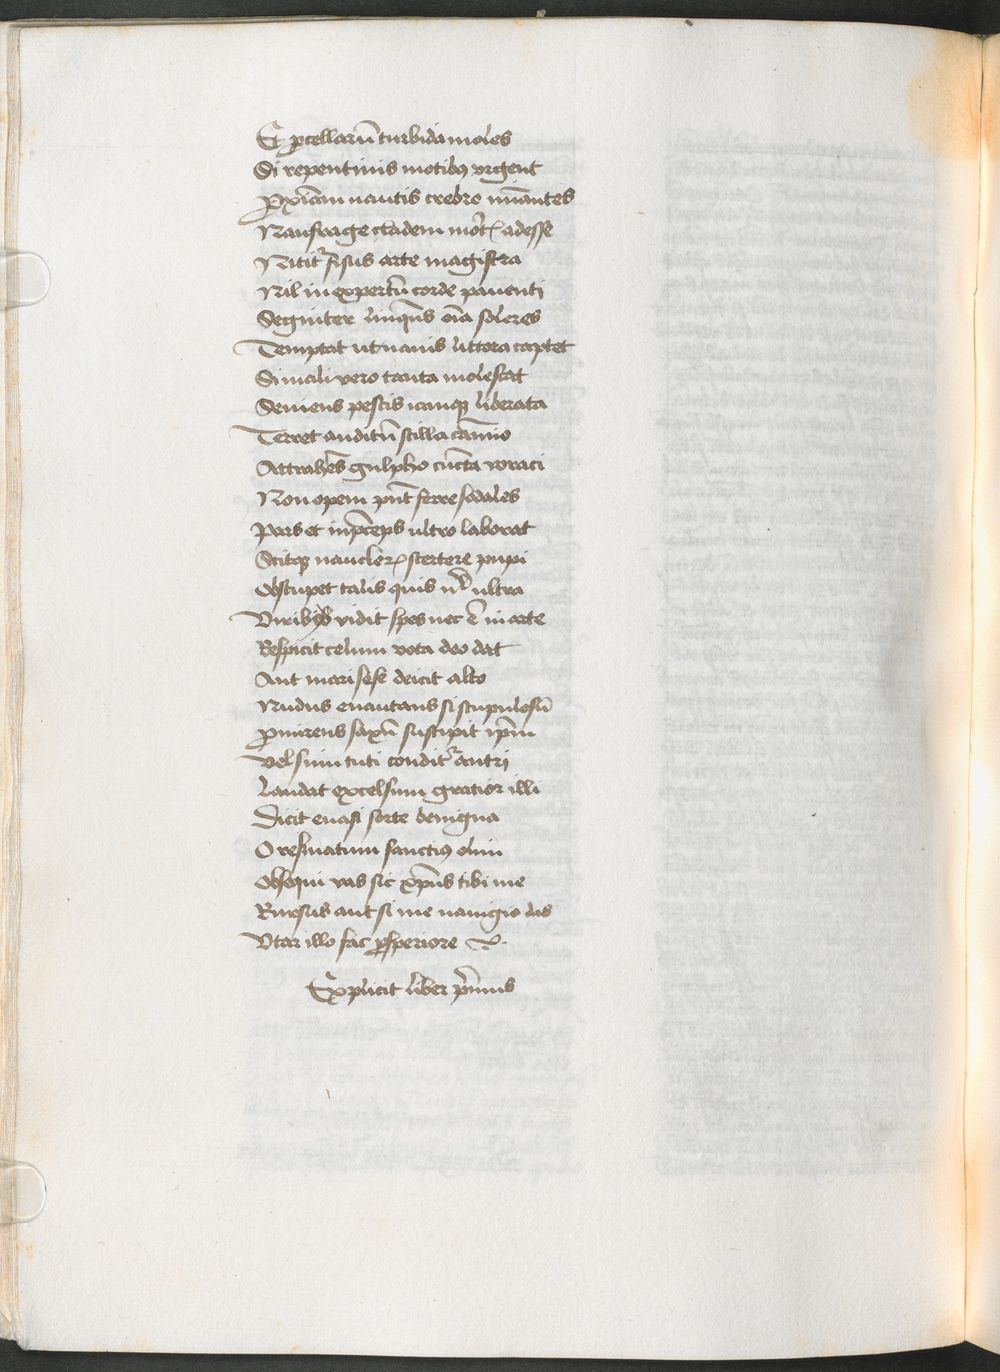 Et ꝓcellarū turbida moles
Si repentinis motibꝰ vrgent
Ꝓxīam nautis crebro minātes
Naufrage cladem mort adesse
Nitit͛ rsus arte magistra
Nil in expertū corde pauenti
Segniter linquēs oīa soleres
Temptat ut nauis littora captet
Si mali vero tanta molestat
Seuiens pestis iamqꝫ liberata
Terret auditū scilla camīo
Attrahēs gulpho cūcta voraci
Non opem pn̄t ferre sodales
Pars et inp̄ceps ultro laborat
Scitqꝫ naucler stertere pupi
Obstupet talis quis ultra
Viribꝫ vidit spes nec ē in arte
Respicit celum vota deo dat
Aut mari sese deicit alto
Nudus enatans si scupulosū
Ꝓmirens saxū suscipit ip̄m
Vel sinu tuti condit͛ antri
Laudat excelsum gratior illi
Dicit euasi sorte benigna
O reseruatum sanctiꝰ olim
Obsequi vas sic xp̄us tibi me
Rursus aut si me nauigio das
Vtar illo fac ꝓsperiore
Explicit liber p̄mus